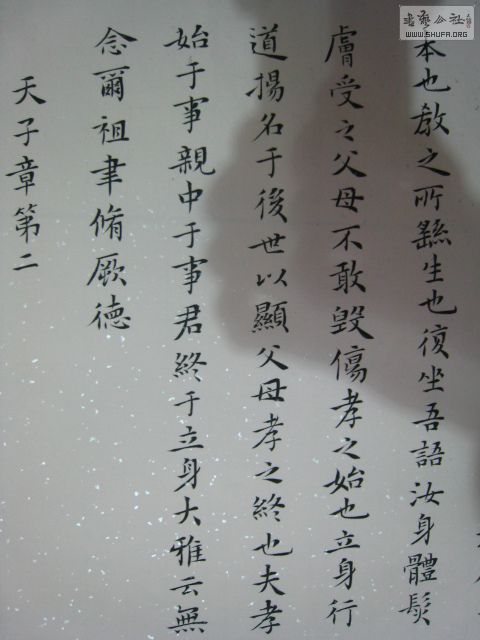 本也教之所繇生也復坐吾語汝身體髮
膚受之父母不敢毀傷孝之始也立身行
道揚名于後世以顯父母孝之終也夫孝
始于事親中于事君終于立身大雅云無
念爾祖聿脩厥德
天子章第二
書藝公社
WWW.SHUFA.ORG